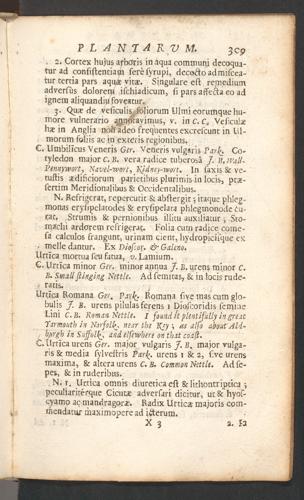 PLANTARUM. 309
2. Cortex hujus arboris in aqua communi decoqua-
tur ad consistentiam ferè syrupi, decocto admiscea-
tur tertia pars aquæ vitæ. Singulare est remedium
adversùs dolorem ischiadicum, si pars affecta eo ad
ignem aliquandiu foveatur.
3. Quæ de vesiculis foliorum Ulmi eorumque hu-
more vulnerario annotavimus, v. in C. C. Vesiculæ
hæ in Anglia non adeo frequentes excrescunt in Ul-
morum foliis ac in exteris regionibus.
C. Umbilicus Veneris Ger. Veneris vulgaris Park. Co-
tyledon major C. B. vera radice tuberosâ J. B. Wall-
Pennywort, Navel-wort, Kidney-wort. In saxis & ve-
tustis ædificiorum parietibus plurimis in locis, præ-
sertim Meridionalibus & Occidentalibus.
N. Refrigerat, repercutit & abstergit; itaque phleg-
monas erysipelatodes & erysipelata phlegmonode cu-
rat. Strumis & pernionibus illitu auxiliatur; Sto-
machi ardorem refrigerat. Folia cum radice come-
sa calculos frangunt, urinam cient, hydropicisque ex
melle dantur. Ex Dioscor. & Galeno.
Urtica mortua seu fatua, v. Lamium.
C. Urtica minor Ger. minor annua J. B. urens minor C.
B. Small stinging Nettle. Ad semitas, & in locis rude-
ratis.
Urtica Romana Ger. Park. Romana sive mas cum glo-
bulis J. B. urens pilulas ferens 1 Dioscoridis semine
Lini C. B. Roman Nettle. I found it plentifully in great
Yarmouth in Norfolk, near the Key; as also about Ald-
burgh in Suffolk, and elsewhere on that coast.
C. Urtica urens Ger. major vulgaris J. B. major vulga-
ris & media sylvestris Park. urens 1 & 2, sive urens
maxima, & altera urens C. B. Common Nettle. Ad se-
pes, & in ruderibus.
N. 1. Urtica omnis diuretica est & lithontriptica;
peculiaritérque Cicutæ adversari dicitur, ut & hyos-
cyamo ac mandragoræ. Radix Urticæ majoris com-
mendatur maximopere ad icterum.
X 3 2. Ea